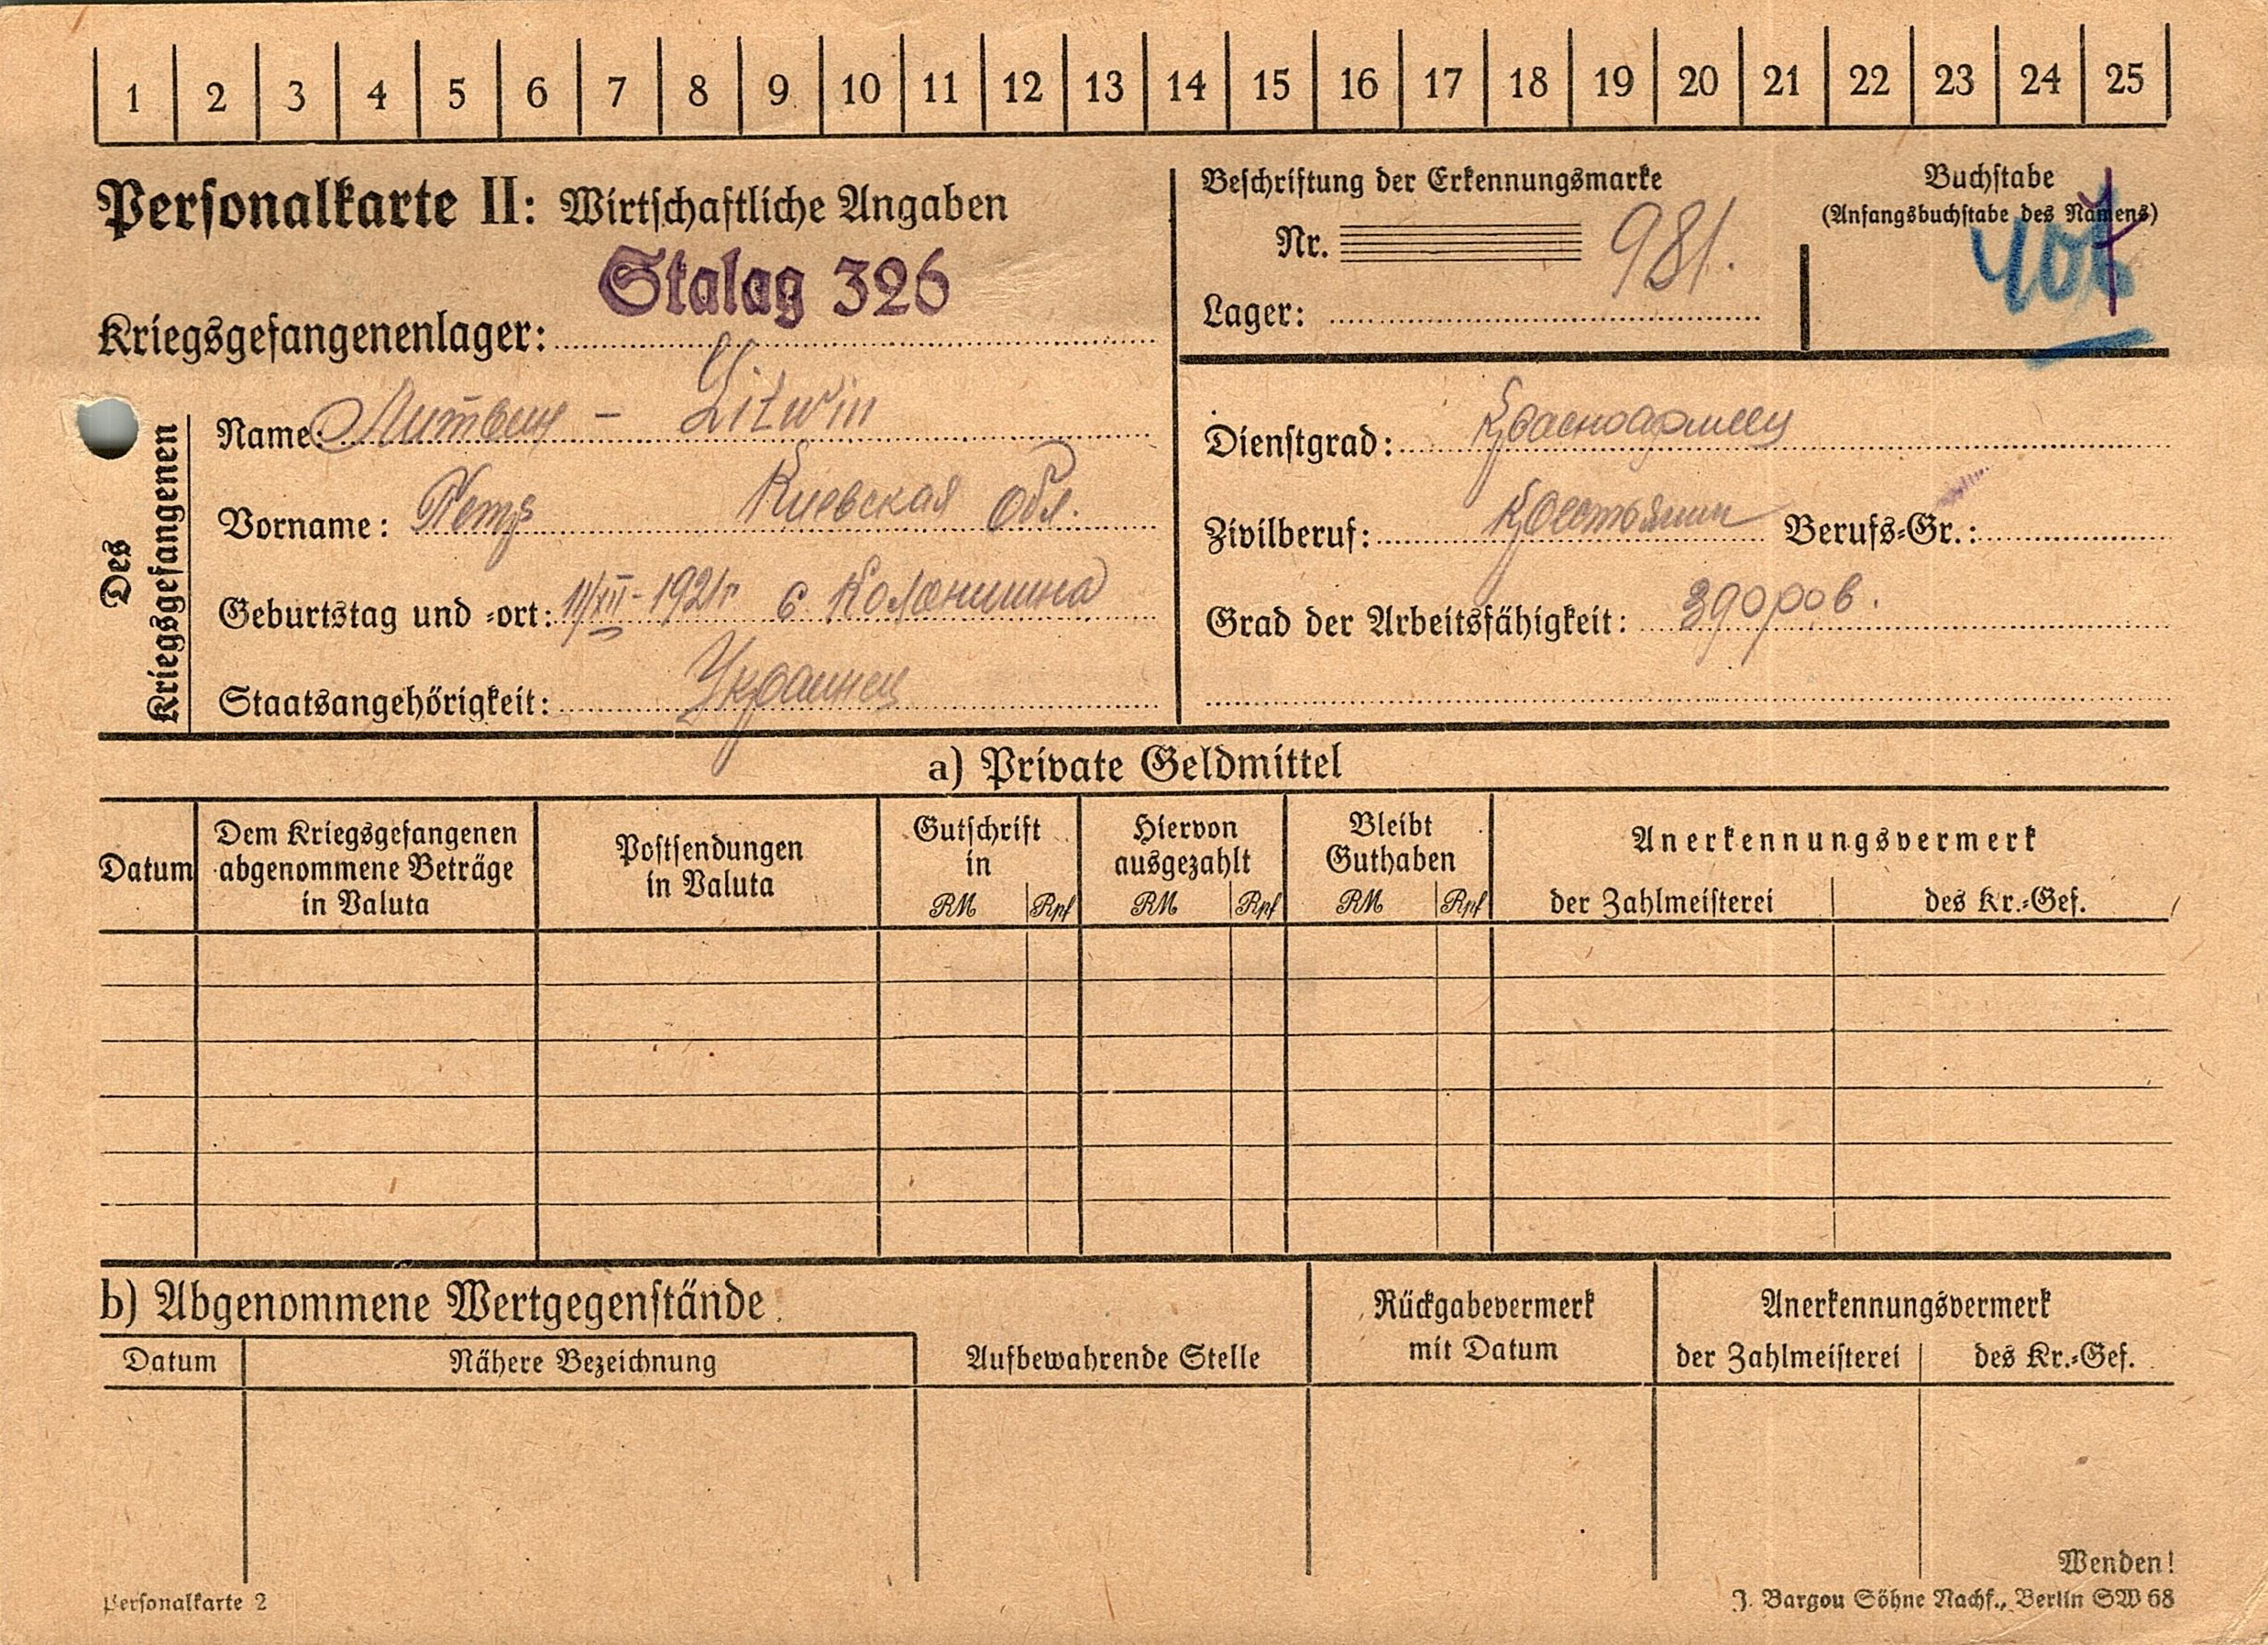 1 2 3 4 5 6 7 8 9 10 11 12 13 14 15 16 17 18 19 20 21 22 23 24 25
Personalkarte II: Wirtschaftliche Angaben
Stalag 326
Kriegsgefangenenlager:
Beschriftung der Erkennungsmarke
Nr. 981.
Lager:
Buchstabe
(Anfangsbuchstabe des Namens)
Des Kriegsgefangenen
Name: Литвин - Litwin
Vorname: Петр Киевская обл.
Geburtstag und -ort: 11/XII-1921г с. Колонщина
Staatsangehörigkeit: Украинец
Dienstgrad: Красноармеец
Zivilberuf: Крестьянин Berufs-Gr.:
Grad der Arbeitsfähigkeit: здоров.
a) Private Geldmittel
Datum
Dem Kriegsgefangenen
abgenommene Beträge
in Valuta
Postsendungen
in Valuta
Gutschrift
in
RM Rpf
Hiervon
ausgezahlt
RM Rpf
Bleibt
Guthaben
RM Rpf
Anerkennungsvermerk
der Zahlmeisterei des Kr.-Gef.
b) Abgenommene Wertgegenstände
Datum Nähere Bezeichnung
Aufbewahrende Stelle
Rückgabevermerk
mit Datum
Anerkennungsvermerk
der Zahlmeisterei des Kr.-Gef.
Wenden!
Personalkarte 2
J. Bargou Söhne Nachf., Berlin SW 68